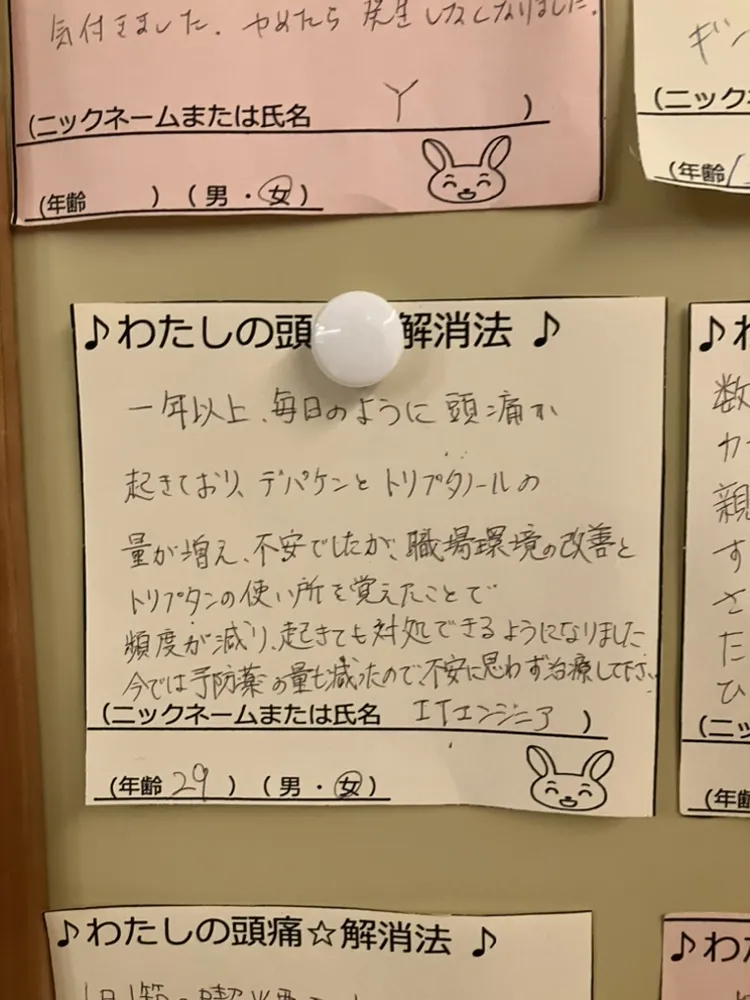 気付きました。やめたら発生しなくなりました。
(ニックネームまたは氏名 Y )
(年齢 ) ( 男 ・ 女 )
ギン
(ニック
(年齢
♪わたしの頭 解消法 ♪
一年以上、毎日のように頭痛が
起きており、デパケンとトリプタノールの
量が増え、不安でしたが、職場環境の改善と
トリプタンの使い所を覚えたことで
頻度が減り、起きても対処できるようになりました
今では予防薬の量も減ったので、不安に思わず治療して下さい
(ニックネームまたは氏名 ITエンジニア )
(年齢 29 ) ( 男 ・ 女 )
♪わ
数
カ
親
す
さ
た
ひ
(ニッ
(年齢
♪わたしの頭痛☆解消法 ♪
♪わた